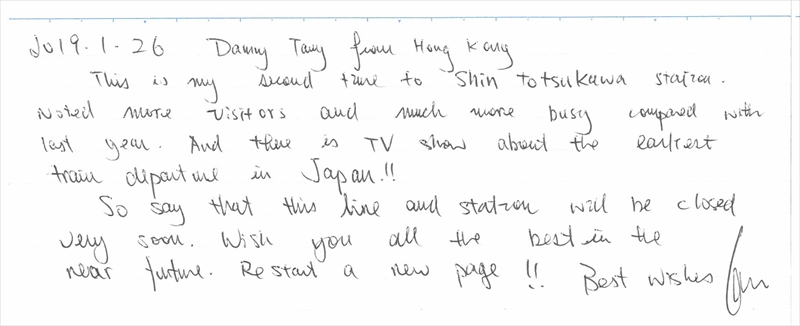 2019.1.26 Danny Tang from Hong Kong
This is my second time to Shin Totsukawa station.
Noted more visitors and much more busy compared with
last year. And there is TV show about the earliest
train departure in Japan.!!
So say that this line and station will be closed
very soon. Wish you all the best in the
near furture. Restart a new page !! Best wishes